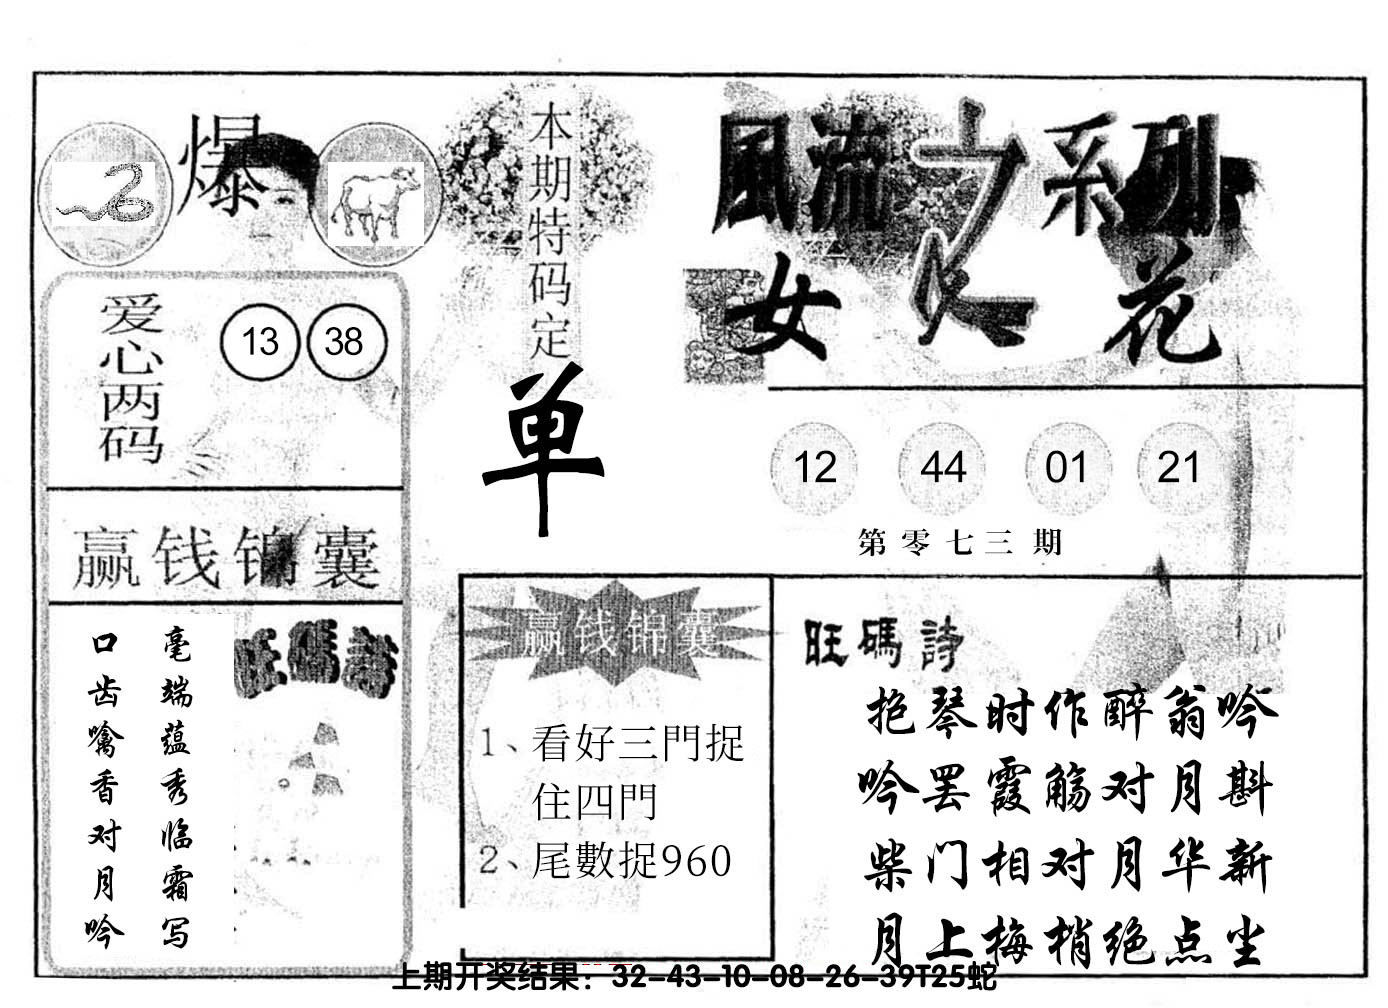 爆
本期特码定
单
風流之系列
女人花
爱心两码
13 38
12 44 01 21
第零七三期
赢钱锦囊
毫端蕴秀临霜写
口齿噙香对月吟
旺碼詩
赢钱锦囊
1、看好三門捉
住四門
2、尾數捉960
旺碼詩
抱琴时作醉翁吟
吟罢霞觞对月斟
柴门相对月华新
月上梅梢绝点尘
上期开奖结果：32-43-10-08-26-39T25蛇